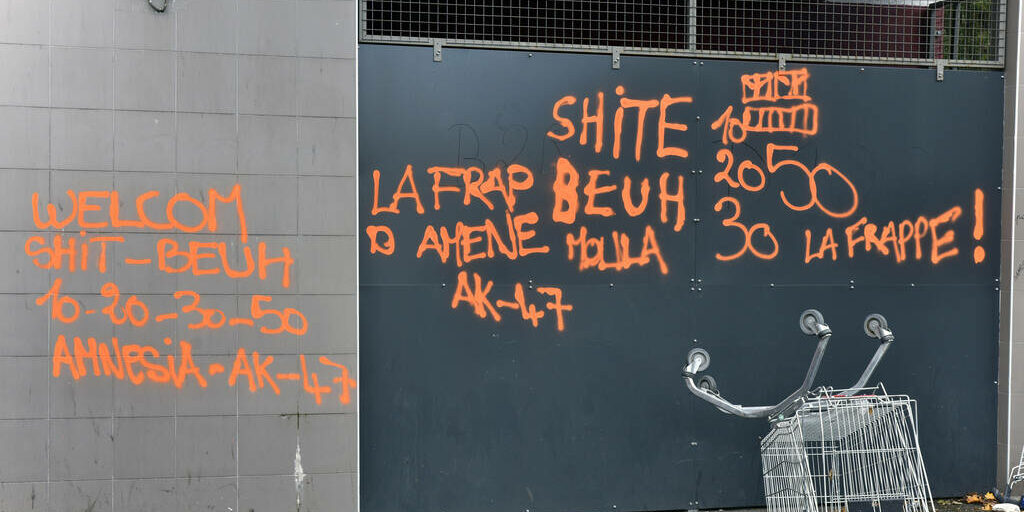 WELCOM
SHIT-BEUH
10-20-30-50
AMNESIA-AK-47
SHITE
LA FRAP BEUH
D AMENE MOULA
AK-47
10
20 50
30 LA FRAPPE!